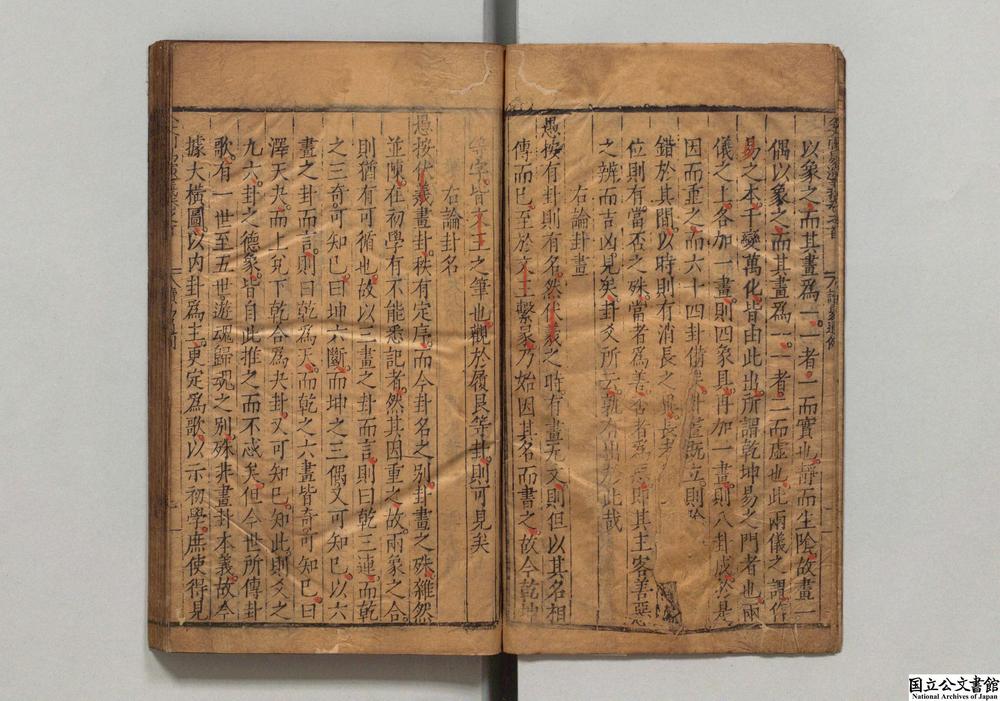 以象之而其畫爲一一者一而實也靜而生陰故畫一
偶以象之而其畫爲一一者二而虛也此兩儀之謂作
易之本千變萬化皆由此出所謂乾坤易之門者也兩
儀之上各加一畫則四象具再加一畫則八卦成於是
因而重之而六十四卦備矣卦位既立則
錯於其間以時則有消長之
位則有當否之殊當者爲善否者爲惡即其主客善惡
之辨而吉凶見矣卦爻所云孰有出於此哉
右論卦畫
愚按有卦則有名然伏羲之時有畫无文則但以其名相
傳而已至於文王繫彖乃始因其名而書之故今乾坤
等字皆文王之筆也觀於履艮等卦則可見矣
右論卦名
愚按伏羲畫卦秩有定序而今卦名之別卦畫之殊雜然
並陳在初學有不能悉記者然其因重之故兩象之合
則猶有可循也故以三畫之卦而言則曰乾三連而乾
之三奇可知已曰坤六斷而坤之三偶又可知已以六
畫之卦而言則曰乾爲天而乾之六畫皆奇可知已曰
澤天夬而上兌下乾合爲夬卦又可知已知此則又之
九六卦之德象皆自此推之而不惑矣但今世所傳卦
歌有一世至五世遊魂歸魂之别殊非畫卦本義故今
據大橫圖以内卦爲主更定爲歌以示初學庶使得見
国立公文書館
National Archives of Japan